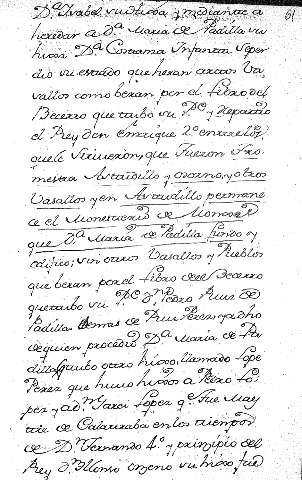 61
Dª Isabel su Tia y mediante a
heredar a Dª Maria de Padilla su
hixa Dª Costanza Infanta, se per
dio su estado que heran ciertos Va
vallos como beran por el libro del
Becerro que tubo su Pᵉ y Repartio
el Rey don Enrrique 2º entre los
que le sirvieron, que fueron Fro
mesta Astudillo y osorno, y otros
Vasallos y en Astudillo permane
ce el Monesterio de Monxas
que Dª Maria de Padilla fundo y
edifico; sin otros Vasallos y Pueblos
que beran por el libro de el Becerro
que tubo su Pᵉ Dⁿ Pedro Ruiz de
Padilla demas de Rui Perez su hijo
de quien procedio Dª Maria de Pa
dilla tubo otro hixo, llamado Lope
Perez que hubo hixos a Pero Lo
pez y a Dⁿ Garci Lopez qᵉ fue Maes
tre de Calatraba en los tiempos
de Dⁿ Fernando 4º y principio del
Rey Dⁿ Alonso onzeno su hixo, fue